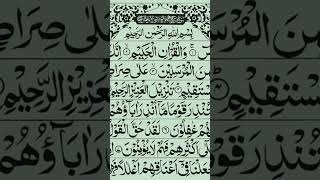 بِسْمِ اللهِ الرَّحْمٰنِ الرَّحِيْمِ
وَالْقُرْاٰنِ الْحَكِيْمِ اِنَّكَ
مِنَ الْمُرْسَلِيْنَ عَلٰى صِرَاطٍ
مُّسْتَقِيْمٍ تَنْزِيْلَ الْعَزِيْزِ الرَّحِيْمِ
لِتُنْذِرَ قَوْمًا مَّا اُنْذِرَ اٰبَآؤُهُمْ
هُمْ غٰفِلُوْنَ لَقَدْ حَقَّ الْقَوْلُ
عَلٰٓى اَكْثَرِهِمْ فَهُمْ لَا يُؤْمِنُوْنَ
جَعَلْنَا فِيْٓ اَعْنَاقِهِمْ اَغْلٰلًا